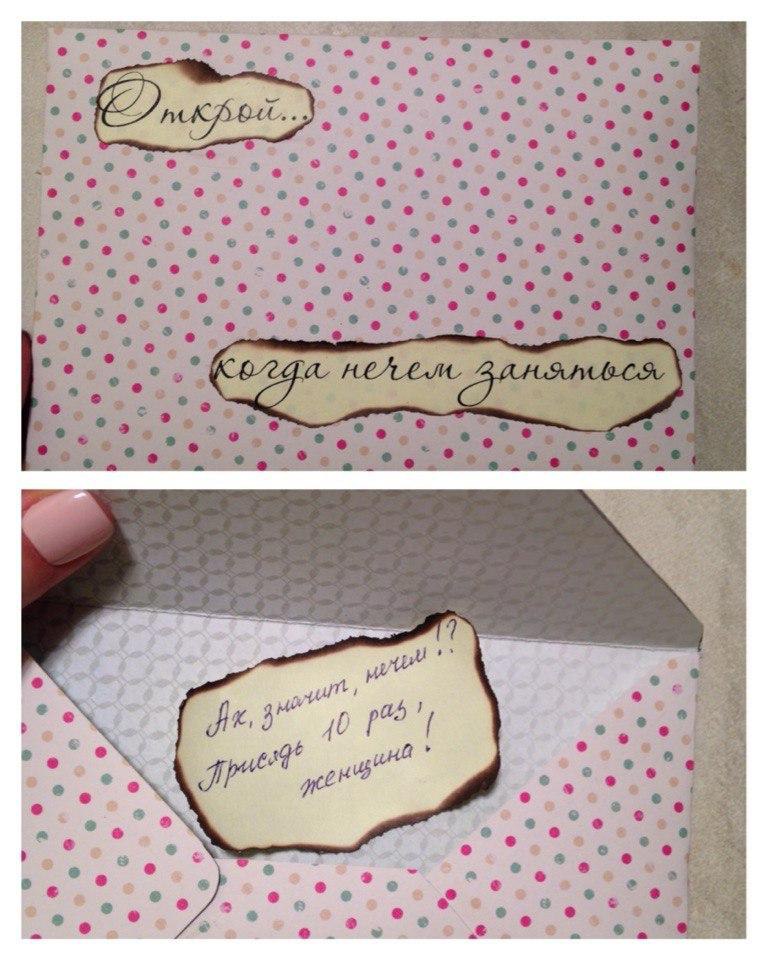 Открой...
когда нечем заняться
Ах, значит, нечем!?
Присядь 10 раз,
женщина!